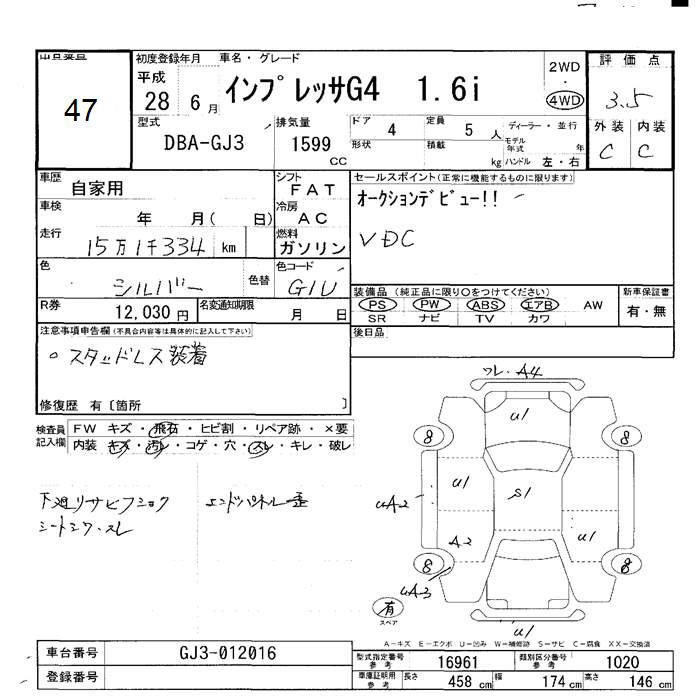 47
初度登録年月 車名・グレード
平成
28 6月 インプレッサG4 1.6i
2WD
・
4WD
評価点
3.5
外装 内装
C C
型式 DBA-GJ3
排気量 1599 CC
ドア 4
形状
定員 5 人
積載 kg
ディーラー・並行
モデル年式 年
ハンドル 左・右
車歴 自家用
シフト FAT
車検 年 月( 日)
冷房 AC
走行 15万1千334 km
燃料 ガソリン
色 シルバー 色替
色コード G1U
R券 12,030円
名変通知期限 月 日
セールスポイント(正常に機能するものに限ります)
オークションデビュー!!
VDC
装備品(純正品に限り○をつけてください)
PS PW ABS エアB AW
SR ナビ TV カワ
新車保証書
有・無
後日品
注意事項申告欄(不具合内容等は具体的に記入して下さい)
○スタッドレス装着
修復歴 有〔箇所 〕
検査員記入欄
FW キズ・飛石・ヒビ割・リペア跡・×要
内装 キズ・汚レ・コゲ・穴・スレ・キレ・破レ
下廻りサビフショク エンドパネル歪
シートシワ・スレ
ワレ・A4
U1
8 8
U1
S1
UA2
A2
U1
8 8
UA3
有
スペア
U1
A−キズ E−エクボ U−凹み W−補修跡 S−サビ C−腐食 XX−交換済
車台番号 GJ3-012016
登録番号
型式指定番号 参考 16961
類別区分番号 参考 1020
車庫証明用 参考 長さ 458 cm 幅 174 cm 高さ 146 cm